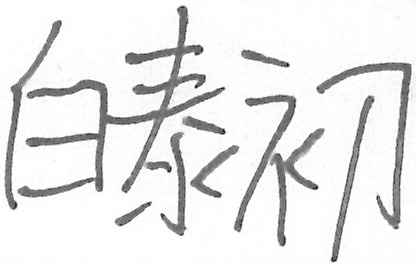 白泰初